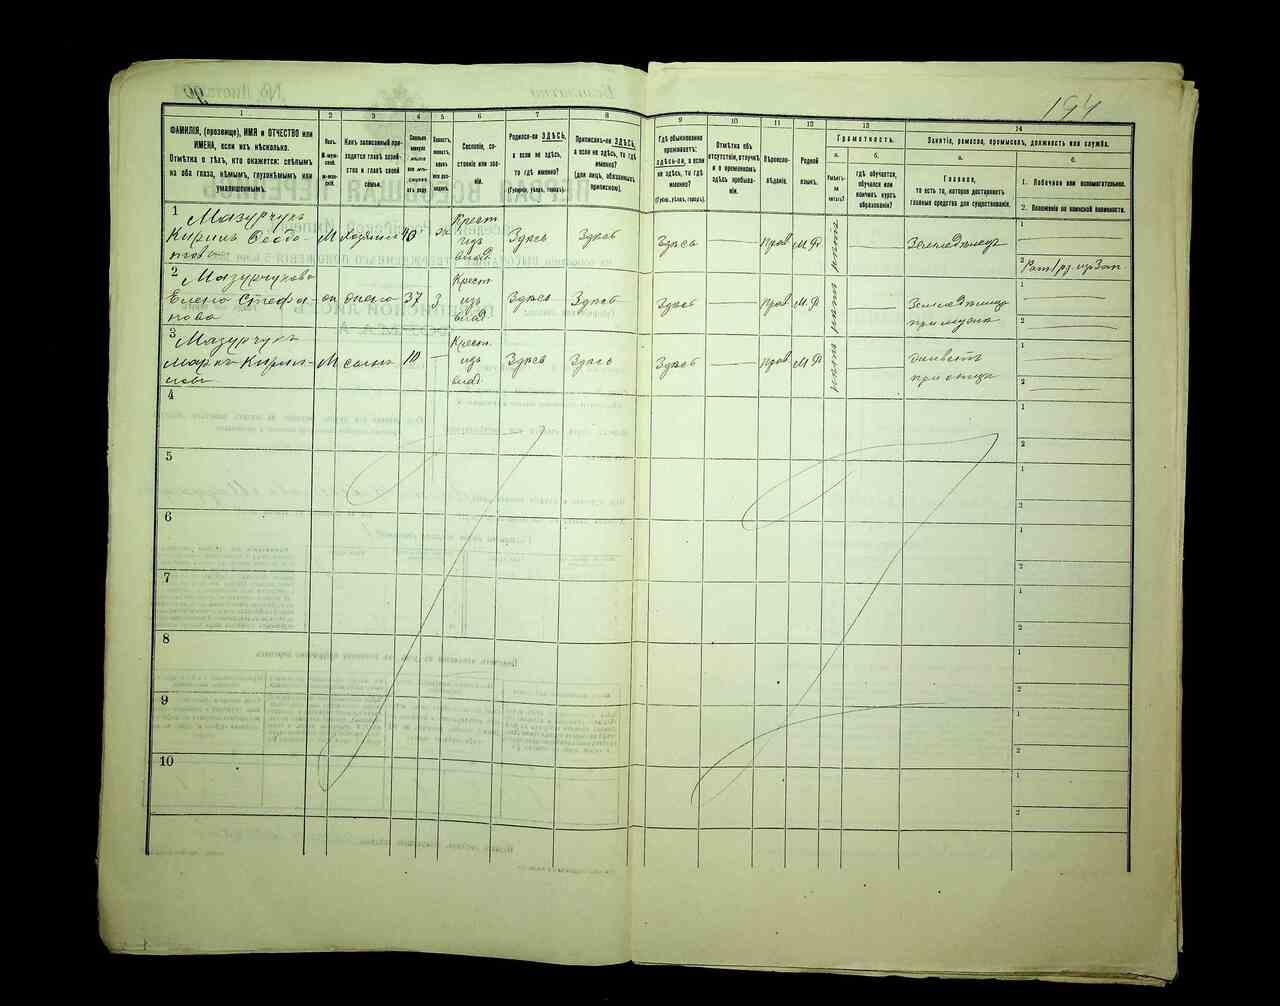 194
1 2 3 4 5 6 7 8 9 10 11 12 13 14
ФАМИЛІЯ, (прозвище), ИМЯ и ОТЧЕСТВО или
ИМЕНА, если ихъ нѣсколько.
Отмѣтка о тѣхъ, кто окажется: слѣпымъ
на оба глаза, нѣмымъ, глухонѣмымъ или
умалишеннымъ.
Какъ записанный при-
ходится главѣ хозяй-
ства и главѣ своей
семьи.
Сословіе, со-
стояніе или зва-
ніе.
Родился-ли ЗДѢСЬ,
а если не здѣсь,
то гдѣ именно?
(Губернія, уѣздъ, городъ).
Приписанъ-ли ЗДѢСЬ,
а если не здѣсь, то гдѣ
именно?
(для лицъ, обязанныхъ
припискою).
Гдѣ обыкновенно
проживаетъ:
здѣсь-ли, а если
не здѣсь, то гдѣ
именно?
(Губер., уѣздъ, городъ).
Отмѣтка объ
отсутствіи, отлучкѣ
и о временномъ
здѣсь пребыва-
ніи.
Вѣроиспо-
вѣданіе.
Родной
языкъ.
Грамотность.
а.
Умѣетъ-
ли
читать?
б.
гдѣ обучается,
обучался или
кончилъ курсъ
образованія?
Занятіе, ремесло, промыселъ, должность или служба.
а.
Главное,
то есть то, которое доставляетъ
главныя средства для существованія.
б.
1. Побочное или вспомогательное.
2. Положеніе по воинской повинности.
1
Мазурчукъ
Кирилъ Ѳеодо-
М Хозяинъ 40 Крест изъ влад. Здѣсь Здѣсь Здѣсь Прав М.Р нѣтъ Земледѣлецъ
1
2
2
Мазурчукова
Елена Стефа-
нова
жена 37 Крест изъ влад. Здѣсь Здѣсь Здѣсь Прав М.Р нѣтъ Земледѣлица
при мужѣ
1
2
3
Мазурчукъ
Маркъ Кирил-
ловъ
М сынъ 10 — Крест. изъ влад. Здѣсь Здѣсь Здѣсь Прав М Р нѣтъ живетъ
при отцѣ
1
2
4
1
2
5
1
2
6
1
2
7
1
2
8
1
2
9
1
2
10
1
2